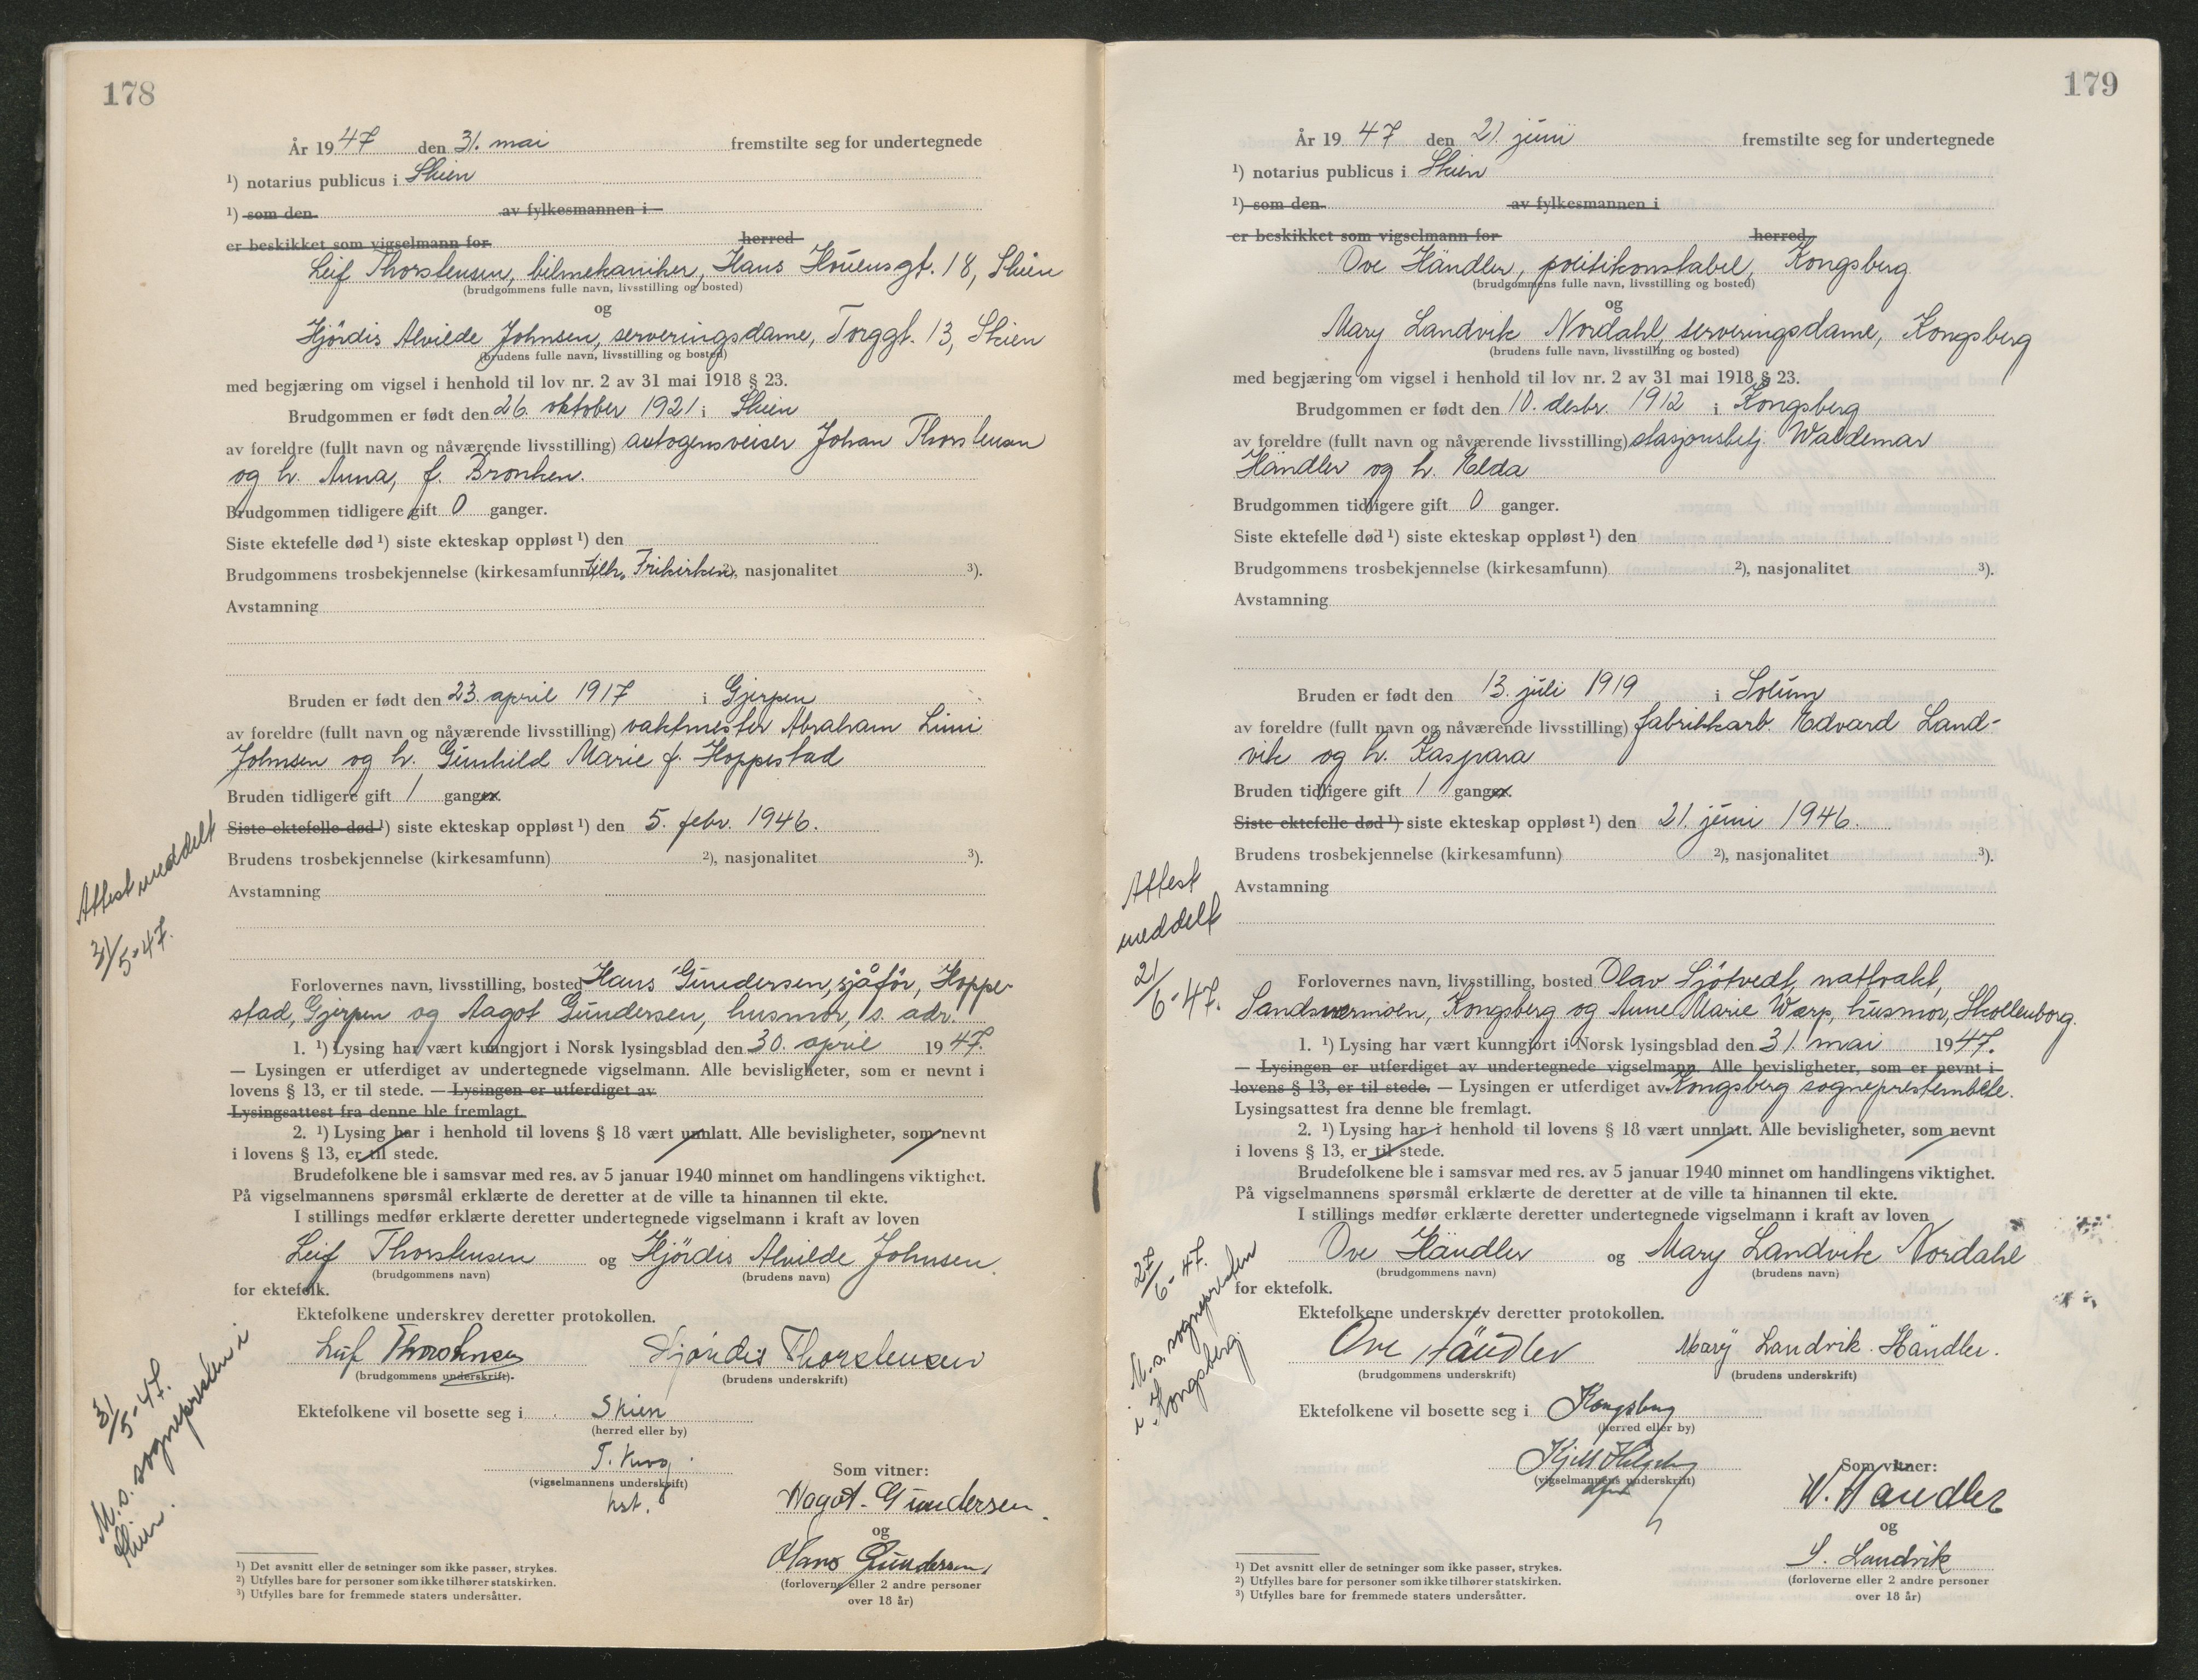 178
År 1947 den 31. mai fremstilte seg for undertegnede
¹) notarius publicus i Skien
¹) som den av fylkesmannen i
er beskikket som vigselmann for herred
Leif Thorstensen, bilmekaniker, Hans Houensgt. 18, Skien
(brudgommens fulle navn, livsstilling og bosted)
og
Hjördis Alvilde Johnsen, serveringsdame, Torggt. 13, Skien
(brudens fulle navn, livsstilling og bosted)
med begjæring om vigsel i henhold til lov nr. 2 av 31 mai 1918 § 23.
Brudgommen er født den 26. oktober 1921 i Skien
av foreldre (fullt navn og nåværende livsstilling) autogensveiser Johan Thorstensen
og h. Anna, f. Bronken.
Brudgommen tidligere gift 0 ganger.
Siste ektefelle død ¹) siste ekteskap oppløst ¹) den
Brudgommens trosbekjennelse (kirkesamfunn) tilh. Frikirken ²), nasjonalitet ³).
Avstamning
Bruden er født den 23. april 1917 i Gjerpen
av foreldre (fullt navn og nåværende livsstilling) vaktmester Abraham Limi
Johnsen og h. Gunhild Marie f. Hoppestad
Bruden tidligere gift 1 ganger.
Siste ektefelle død ¹) siste ekteskap oppløst ¹) den 5. febr. 1946.
Brudens trosbekjennelse (kirkesamfunn) ²), nasjonalitet ³).
Avstamning
Attest meddelt
31/5-47.
Forlovernes navn, livsstilling, bosted Hans Gundersen, sjåför, Hoppe-
stad, Gjerpen og Aagot Gundersen, husmor, s. adr.
1. ¹) Lysing har vært kunngjort i Norsk lysingsblad den 30. april 1947.
— Lysingen er utferdiget av undertegnede vigselmann. Alle bevisligheter, som er nevnt i
lovens § 13, er til stede. — Lysingen er utferdiget av
Lysingsattest fra denne ble fremlagt.
2. ¹) Lysing har i henhold til lovens § 18 vært unnlatt. Alle bevisligheter, som nevnt
i lovens § 13, er til stede.
Brudefolkene ble i samsvar med res. av 5 januar 1940 minnet om handlingens viktighet.
På vigselmannens spørsmål erklærte de deretter at de ville ta hinannen til ekte.
I stillings medfør erklærte deretter undertegnede vigselmann i kraft av loven
Leif Thorstensen og Hjördis Alvilde Johnsen.
(brudgommens navn) (brudens navn)
for ektefolk.
Ektefolkene underskrev deretter protokollen.
Leif Thorstensen Hjördis Thorstensen
(brudgommens underskrift). (brudens underskrift)
31/5-47.
M. s. sognepresten i
Skien.
Ektefolkene vil bosette seg i Skien
(herred eller by)
T. Krog
(vigselmannens underskrift)
hst.
Som vitner:
Aagot Gundersen.
og
Hans Gundersen,
(forloverne eller 2 andre personer
over 18 år)
¹) Det avsnitt eller de setninger som ikke passer, strykes.
²) Utfylles bare for personer som ikke tilhører statskirken.
³) Utfylles bare for fremmede staters undersåtter.
179
År 1947 den 21. juni fremstilte seg for undertegnede
¹) notarius publicus i Skien
¹) som den av fylkesmannen i
er beskikket som vigselmann for herred
Ove Händler, politikonstabel, Kongsberg
(brudgommens fulle navn, livsstilling og bosted)
og
Mary Landvik Nordahl, serveringsdame, Kongsberg
(brudens fulle navn, livsstilling og bosted)
med begjæring om vigsel i henhold til lov nr. 2 av 31 mai 1918 § 23.
Brudgommen er født den 10. desbr. 1912 i Kongsberg
av foreldre (fullt navn og nåværende livsstilling) stasjonsbetj. Waldemar
Händler og h. Elda
Brudgommen tidligere gift 0 ganger.
Siste ektefelle død ¹) siste ekteskap oppløst ¹) den
Brudgommens trosbekjennelse (kirkesamfunn) ²), nasjonalitet ³).
Avstamning
Bruden er født den 13. juli 1919 i Solum
av foreldre (fullt navn og nåværende livsstilling) fabrikkarb. Edvard Land-
vik og h. Kaspara
Bruden tidligere gift 1 ganger.
Siste ektefelle død ¹) siste ekteskap oppløst ¹) den 21. juni 1946.
Brudens trosbekjennelse (kirkesamfunn) ²), nasjonalitet ³).
Avstamning
Attest
meddelt
21/6-47.
Forlovernes navn, livsstilling, bosted Olav Sjötvedt, nattvakt,
Sandsværmoen, Kongsberg og Anne Marie Warp, husmor, Skollenborg.
1. ¹) Lysing har vært kunngjort i Norsk lysingsblad den 31. mai 1947.
— Lysingen er utferdiget av undertegnede vigselmann. Alle bevisligheter, som er nevnt i
lovens § 13, er til stede. — Lysingen er utferdiget av Kongsberg sogneprestembete.
Lysingsattest fra denne ble fremlagt.
2. ¹) Lysing har i henhold til lovens § 18 vært unnlatt. Alle bevisligheter, som nevnt
i lovens § 13, er til stede.
Brudefolkene ble i samsvar med res. av 5 januar 1940 minnet om handlingens viktighet.
På vigselmannens spørsmål erklærte de deretter at de ville ta hinannen til ekte.
I stillings medfør erklærte deretter undertegnede vigselmann i kraft av loven
Ove Händler og Mary Landvik Nordahl
(brudgommens navn) (brudens navn)
for ektefolk.
Ektefolkene underskrev deretter protokollen.
Ove Händler Mary Landvik Händler.
(brudgommens underskrift) (brudens underskrift)
27/6-47.
M. s. sognepresten
i Kongsberg.
Ektefolkene vil bosette seg i Kongsberg
(herred eller by)
(vigselmannens underskrift)
Som vitner:
W. Händler
og
S. Landvik
(forloverne eller 2 andre personer
over 18 år)
¹) Det avsnitt eller de setninger som ikke passer, strykes.
²) Utfylles bare for personer som ikke tilhører statskirken.
³) Utfylles bare for fremmede staters undersåtter.